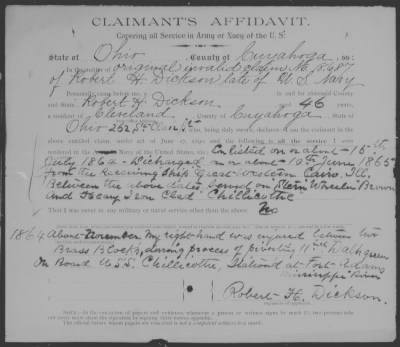 CLAIMANT'S AFFIDAVIT.
Covering all Service in Army or Navy of the U. S.
State of Ohio, County of Cuyahoga, ss:
In the matter of original invalid claim No.
of Robert H. Dickson late of U S Navy
Personally came before me, a in and for aforesaid County
and State, Robert H. Dickson aged 46 years,
a Cleveland County of Cuyahoga, State of
Ohio 252 St Clair St who, being duly sworn, declares that he is the claimant in the
above entitled claim, under act of June 27, 1890, the following is all the service I
rendered in the Navy of the United States, viz: Enlisted on or about 15th
July 1864 - Discharged on or about 10th June 1865
from the Receiving Ship Great Western Cairo, Ill.
Between the above dates, Served on Stern Wheeler Brown
And Heavy Iron Clad Chillicothe
That I was never in any military or naval service other than the above: No
1864 About November My right hand was injured between two
Brass Blocks, during process of pivoting 11 inch Dahlgreen
On Board U.S.S. Chillicothe, Station'd at Fort Adams
Mississippi River
Robert H. Dickson.
NOTE.—In the execution of papers and vouchers, whenever a person or witness signs by mark (X), two persons who
can write must show the signature by signing their names opposite.